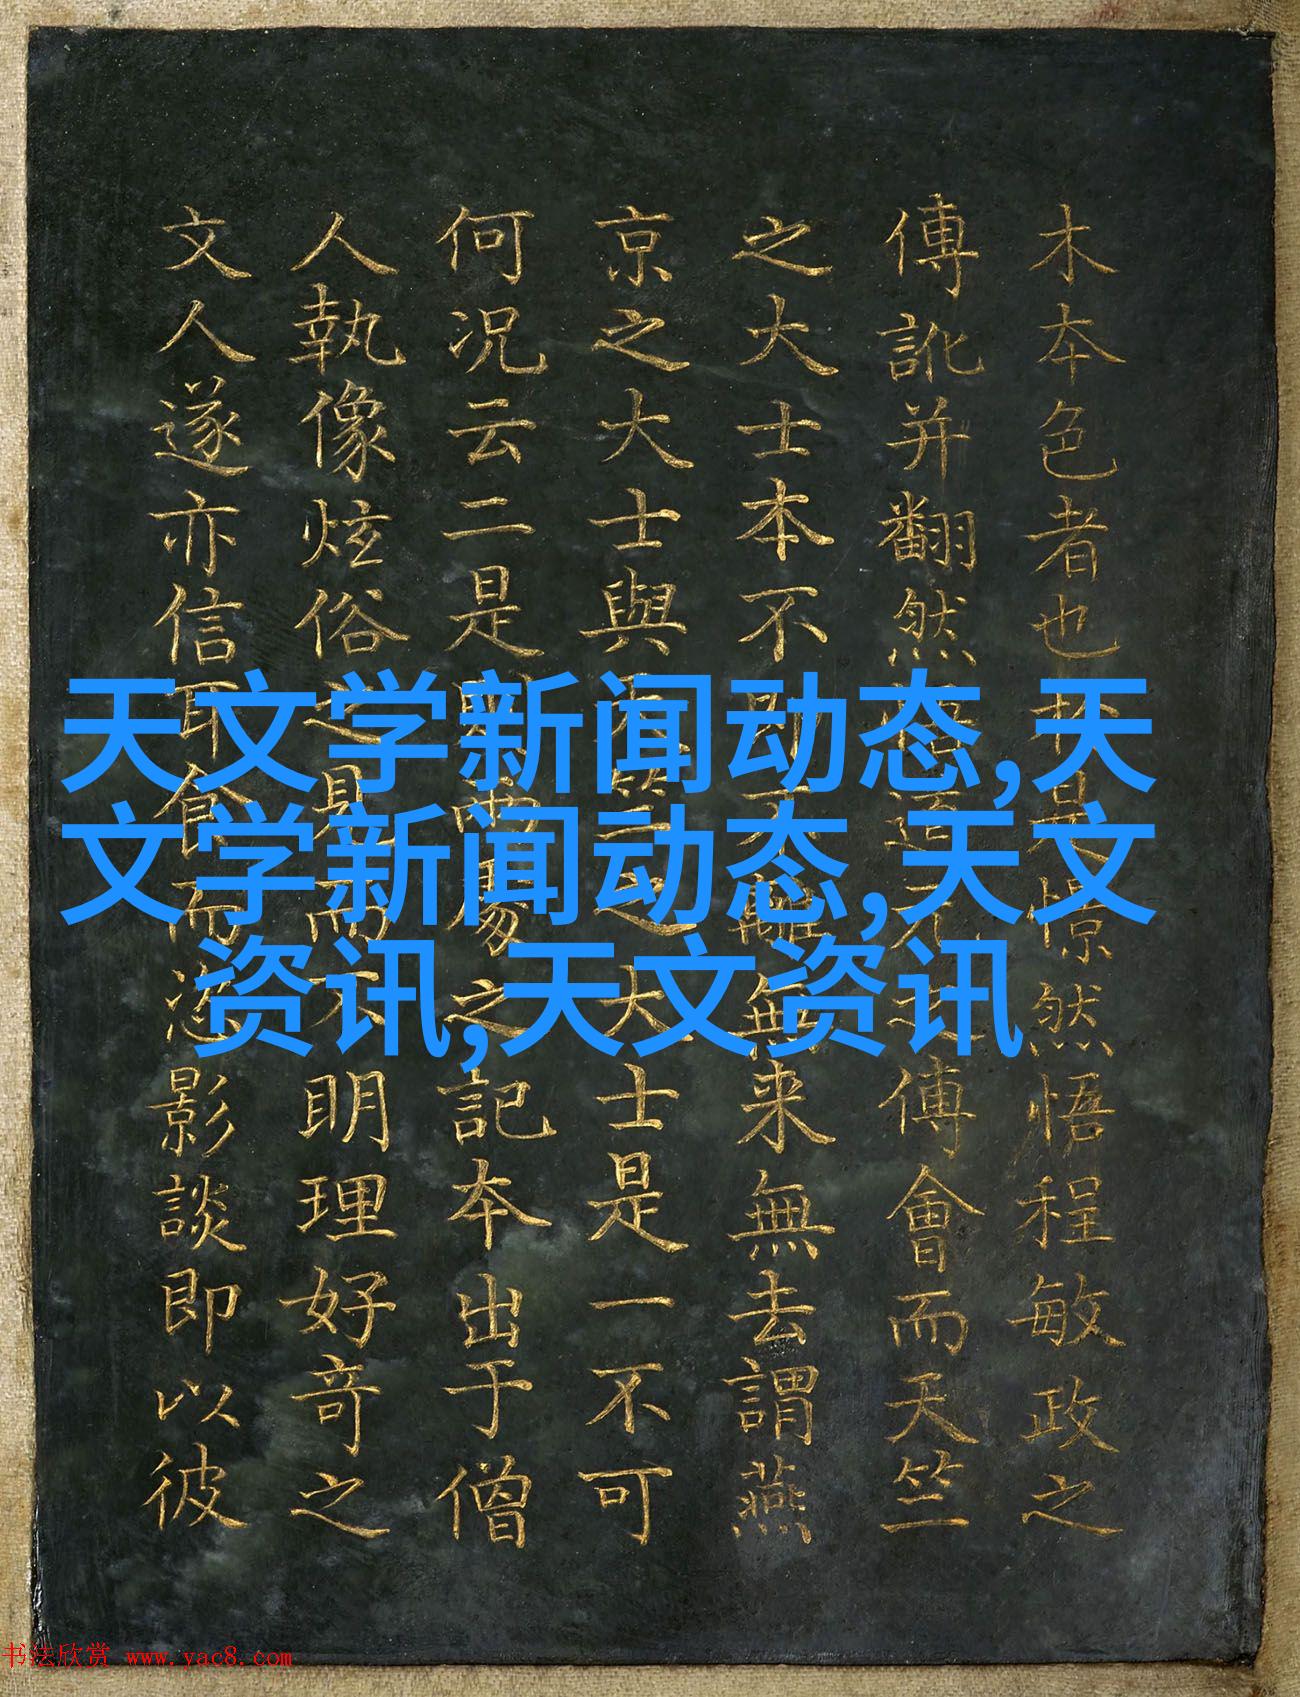 木夲色者也是惊然悟程敏政之
傳訛并翻然傅會而天竺
之大士本不即不離無来無去謂燕
京之大士與天竺之大士是一不可
何况云二是易之記夲出于僧
人執像炫俗之見而不明理好竒之
文人遂亦信耳食而影談即以彼
天文学新闻动态,天
文学新闻动态,天文
资讯,天文资讯
书法欣赏 www.yac8.com